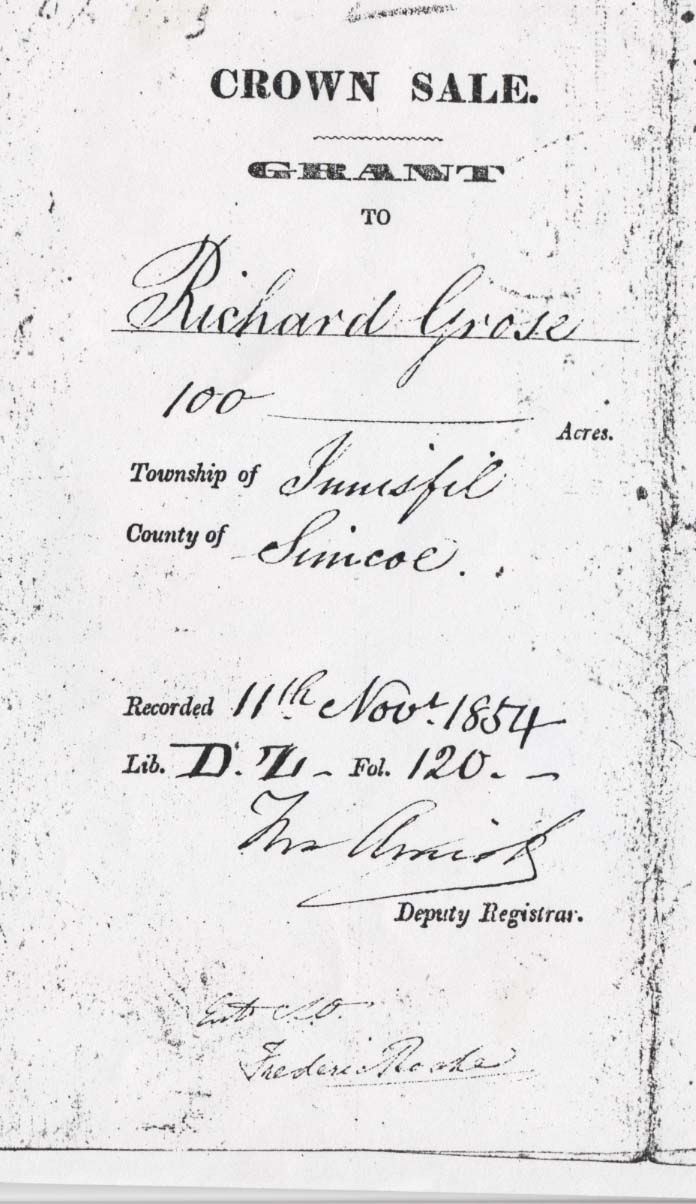 CROWN SALE.
GRANT
TO
Richard Grose
100 Acres.
Township of Innisfil
County of Simcoe.
Recorded 11th Novr. 1854
Lib. D. Z Fol. 120.
Thos Amiot
Deputy Registrar.
Frederic Roche